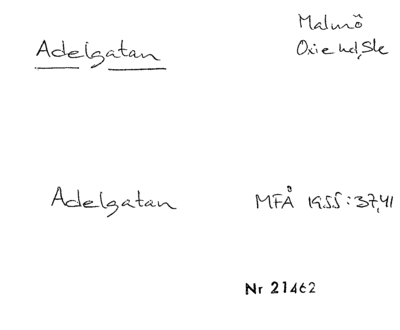 Adelgatan
Malmö
Oxie hd, Sk
Adelgatan
MFÅ 1955:37,41
Nr 21462